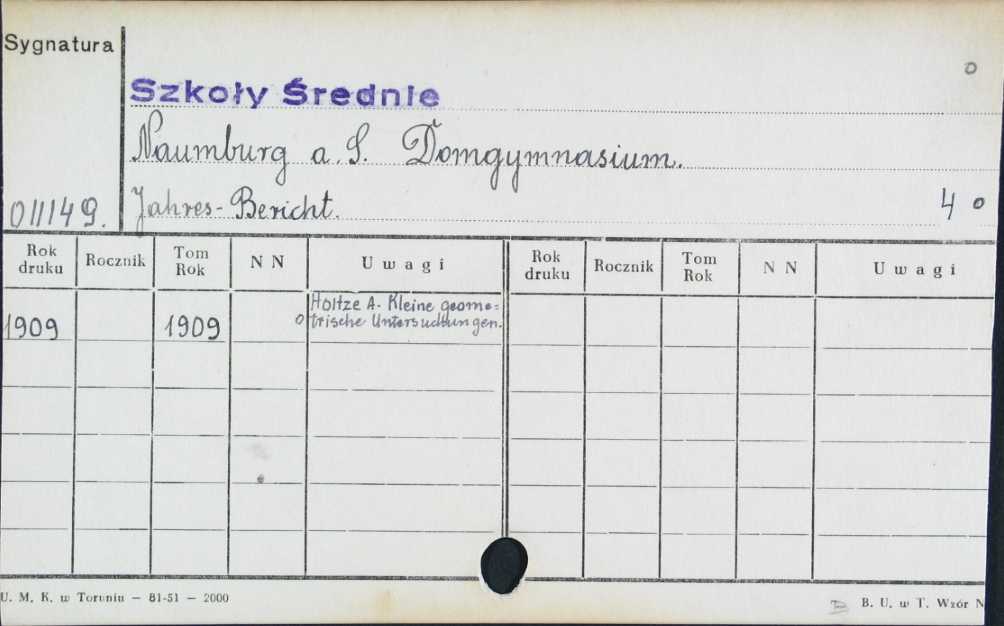 Sygnatura
o
Szkoły Średnie
Naumburg a. S. Domgymnasium.
011149. Jahres-Bericht. 4 o
Rok druku Rocznik Tom Rok N N Uwagi Rok druku Rocznik Tom Rok N N Uwagi
Holtze A. Kleine geome-
1909 1909 o trische Untersuchungen.
U. M. K. w Toruniu — 81-51 — 2000
B. U. w T. Wzór N